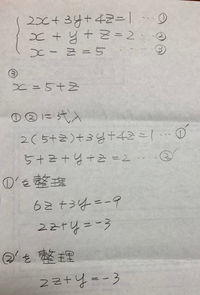 2x+3y+4z=1 … ①
x + y + z = 2 … ②
x - z = 5 … ③
③
x = 5 + z
①②に代入
2(5+z)+3y+4z=1 … ①′
5+z+y+z=2 … ②′
①′を整理
6z+3y=-9
2z+y=-3
②′を整理
2z+y=-3